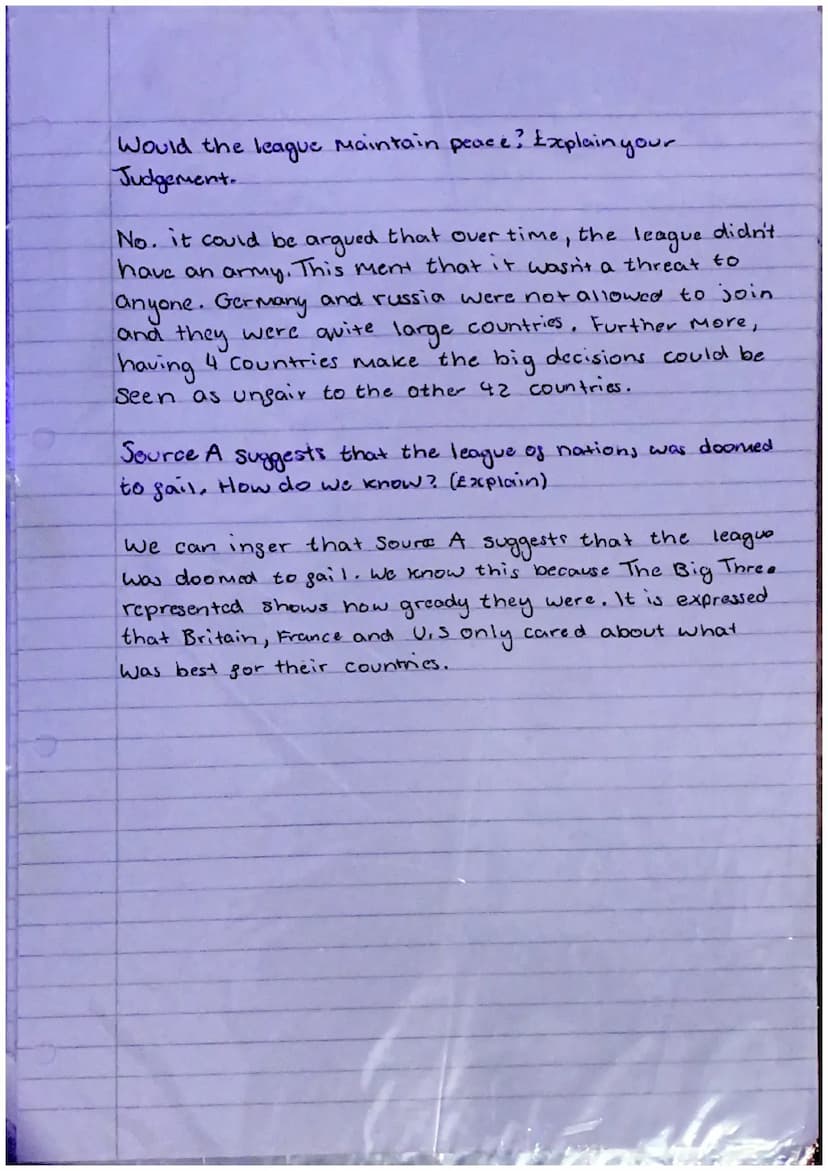 Would the league Maintain peace? Explain your
Judgement.
No. it could be argued that over time, the league didn't
have an army. This ment that it wasn't a threat to
anyone. Germany and russia were not allowed to join
and they were quite large countries. Further More,
having 4 Countries make the big decisions could be
seen as unfair to the other 42 countries.
Source A suggests that the league of nations was doomed
to fail. How do we know? (Explain)
We can infer that Source A suggests that the league
was doomed to fail. We know this because The Big Three
represented shows how greedy they were. It is expressed
that Britain, France and U.S only cared about what
was best for their countries.